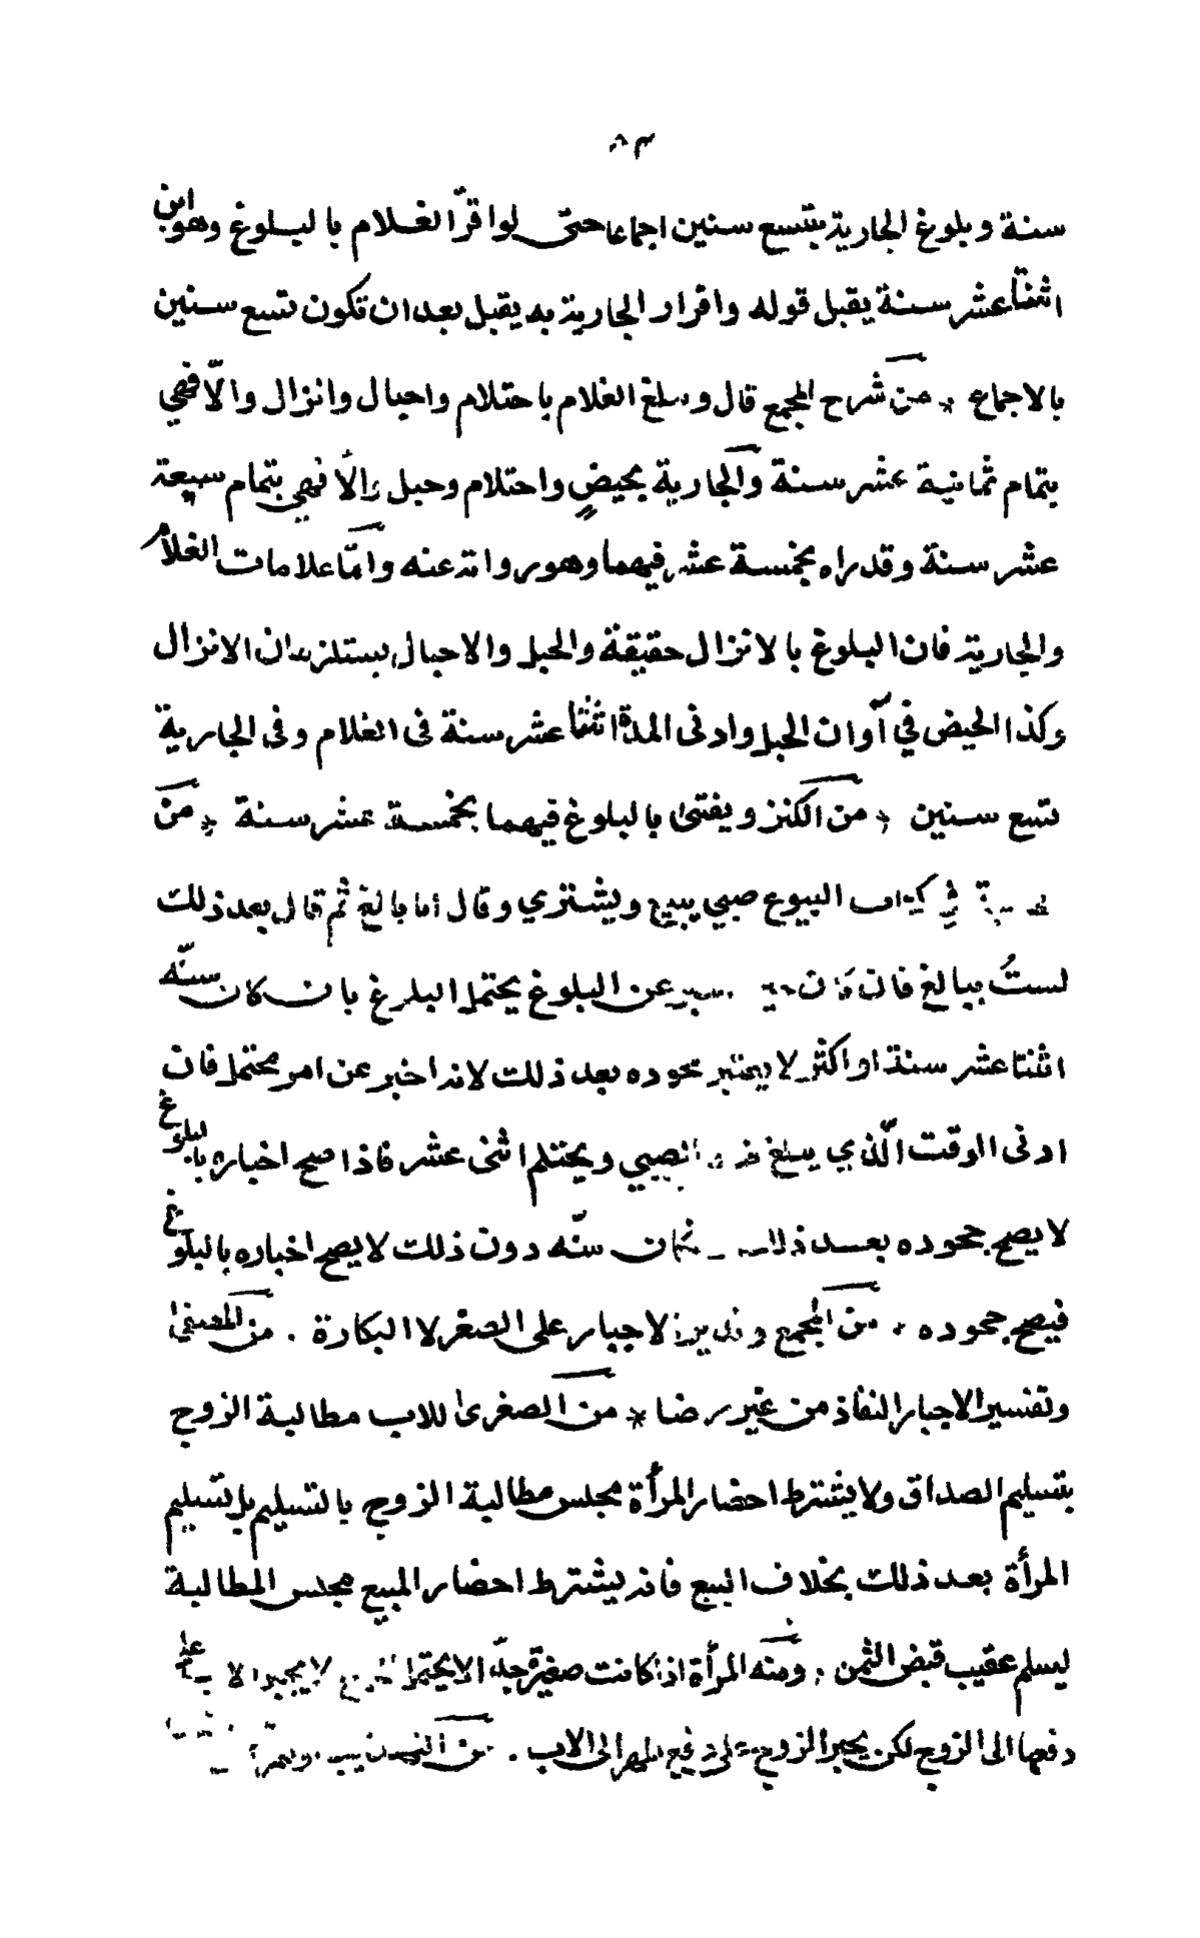 ٨٣
سنة وبلوغ الجارية بتسع سنين اجماعا حتى لو اقرّ الغلام بالبلوغ وهو ابن
اثنتا عشر سنة يقبل قوله واقرار الجارية به يقبل بعد ان تكون تسع سنين
بالاجماع * من شرح المجمع قال وبلغ الغلام باحتلام واحبال وانزال والّا فهي
بتمام ثمانية عشر سنة والجارية بحيضٍ واحتلام وحبل والّا فهي بتمام سبعة
عشر سنة وقدراه بخمسة عشر فيهما وهو رواية عنه وامّا علامات الغلام
والجارية فان البلوغ بالانزال حقيقة والحبل والاحبال يستلزمان الانزال
وكذا الحيض في آوان الحبل وادنى المدة اثنتا عشر سنة فى الغلام وفى الجارية
تسع سنين * من الكنز ويفتى بالبلوغ فيهما بخمسة عشر سنة * من
في كتاب البيوع صبي يبيع ويشتري وقال انا بالغ ثم قال بعد ذلك
لستُ ببالغ فان كان عن البلوغ يحتمل البلوغ بان كان سنّه
اثنتا عشر سنة او اكثر لا يعتبر جحوده بعد ذلك لانه اخبر عن امر محتمل فان
ادنى الوقت الّذي يبلغ الصبي ويحتلم اثنى عشر فاذا صح اخباره بالبلوغ
لا يصح جحوده بعد ذلك كان سنّه دون ذلك لا يصح اخباره بالبلوغ
فيصح جحوده * من المجمع الاجبار على الصغر لا البكارة . من المصفى
وتفسير الاجبار النفاذ من غير رضا * من الصغرى للاب مطالبة الزوج
بتسليم الصداق ولا يشترط احضار المرأة مجلس مطالبة الزوج بالتسليم بل تسليم
المرأة بعد ذلك بخلاف البيع فانه يشترط احضار المبيع مجلس المطالبة
ليسلم عقيب قبض الثمن * ومنه المرأة اذا كانت صغيرة جدّا لا يحتمل لا يجبر الاب على
دفعها الى الزوج لكن يجبر الزوج على دفع المهر الى الاب . من